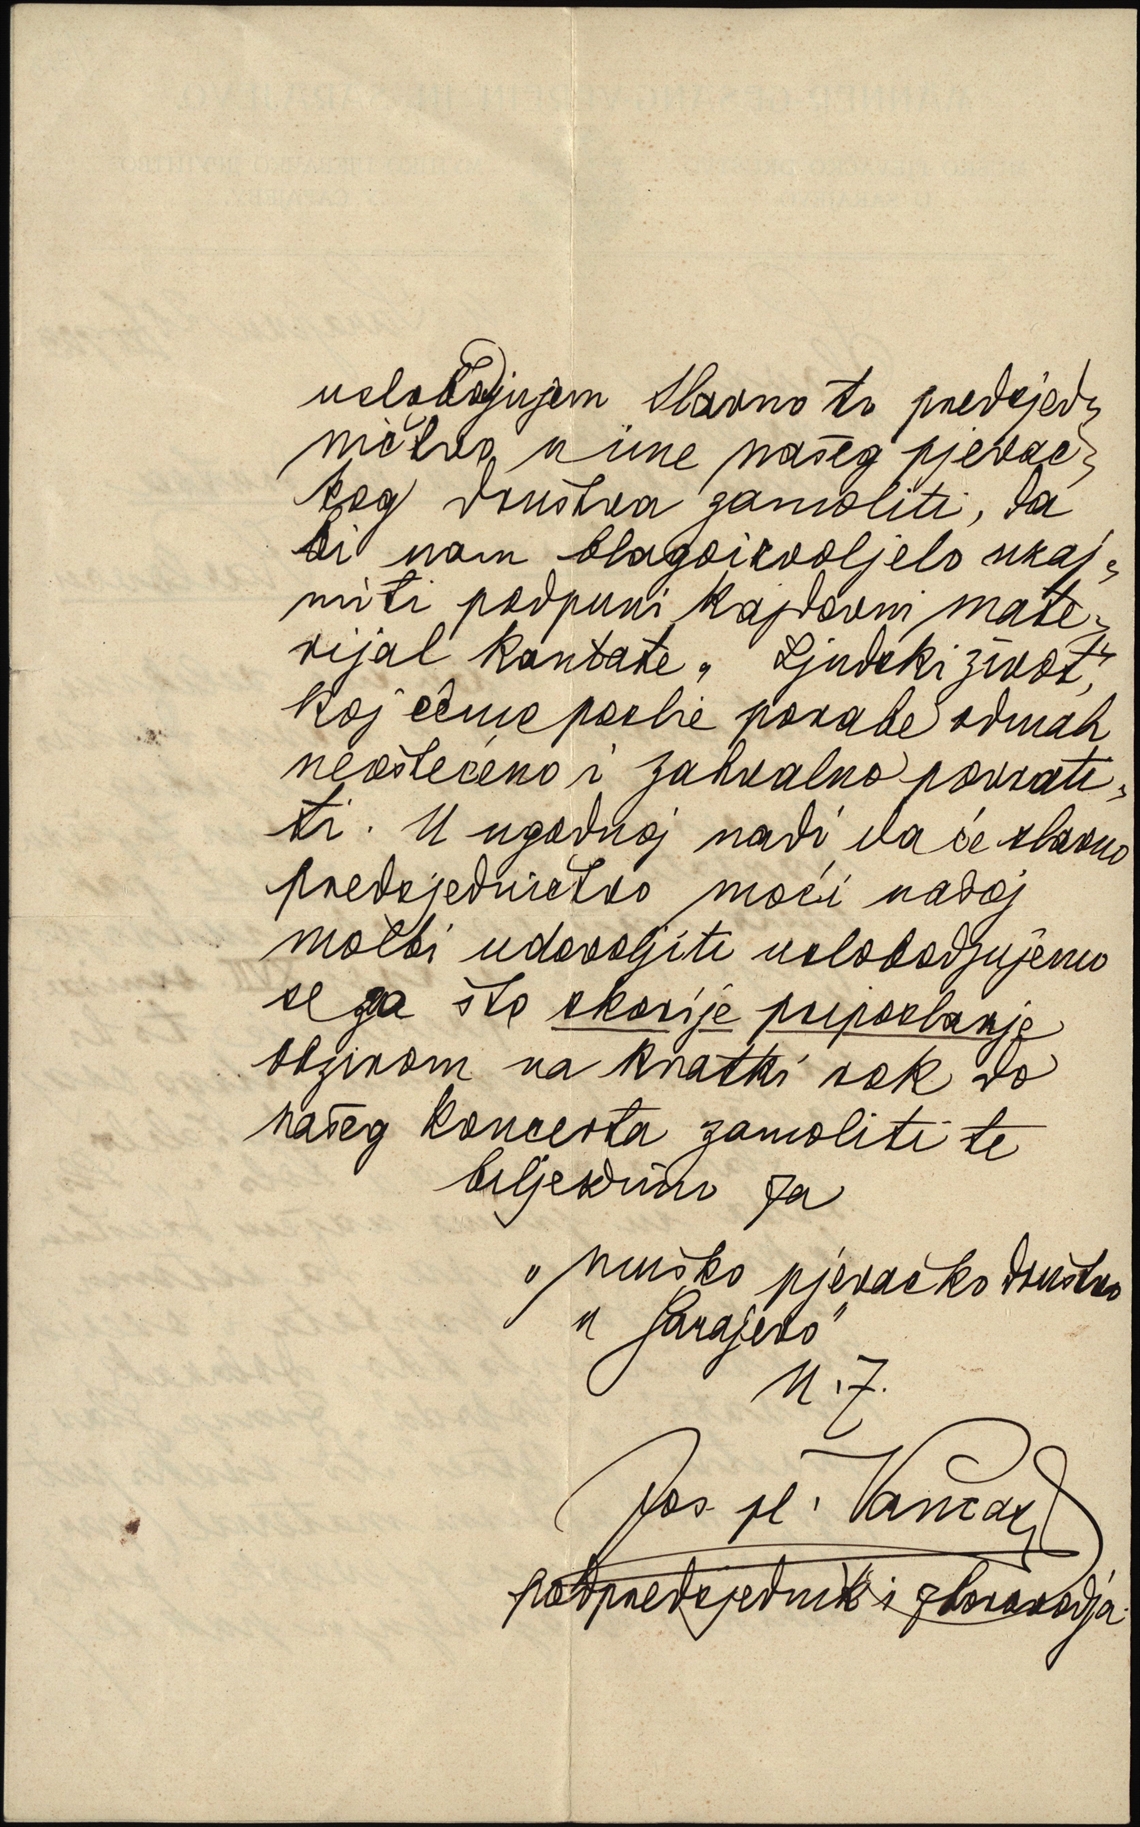 uslobodjujem Slavno to predsjed=
ničtvo u ime našeg pjevač=
kog društva zamoliti, da
bi nam blagoizvoljelo uzaj=
miti podpuni kajdovni mate=
rijal kantate „Ljudski život",
koj ćemo poslie porabe odmah
neoštećeno i zahvalno povrati=
ti. U ugodnoj nadi da će slavno
predsjedničtvo moći našoj
molbi udovoljiti uslobodjujemo
se za što skorije priposlanje
obzirom na kratki rok do
našeg koncerta zamoliti te
bilježimo za
„Muško pjevačko društvo
u Sarajevo"
Jos. pl. Vancaš
podpredsjednik i zborovodja